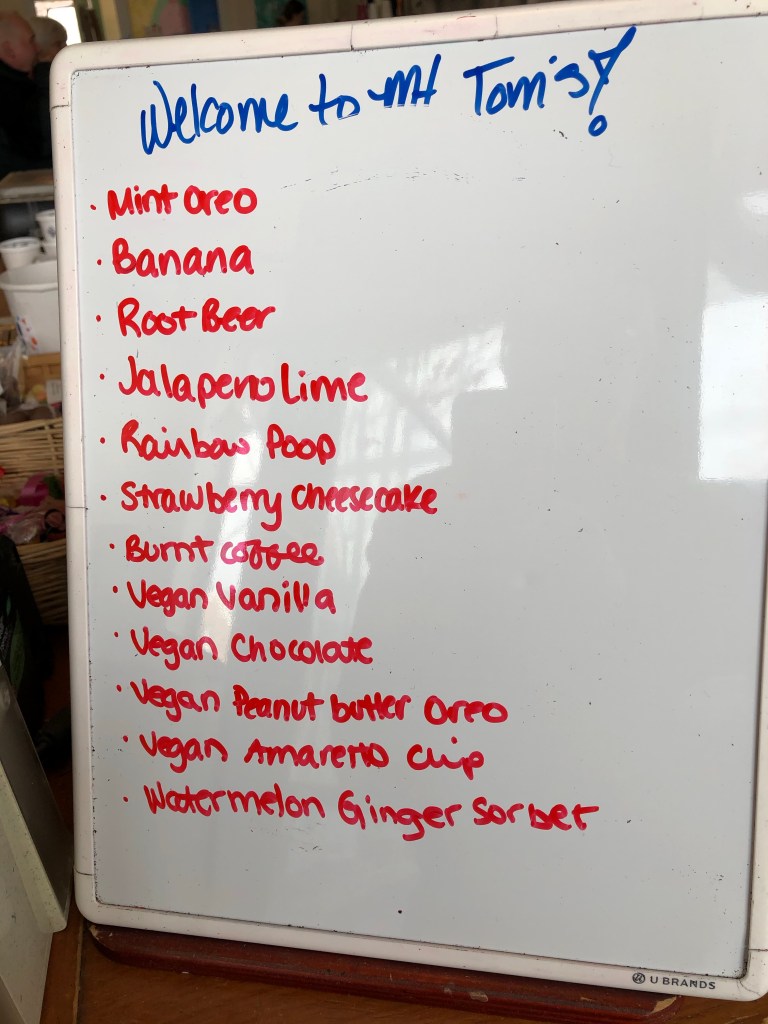 Welcome to Mt Tom's!
· Mint Oreo
· Banana
· Root Beer
· Jalapeno Lime
· Rainbow Poop
· Strawberry Cheesecake
· Burnt coffee
· Vegan Vanilla
· Vegan Chocolate
· Vegan Peanut butter Oreo
· Vegan Amaretto Chip
· Watermelon Ginger Sorbet
U BRANDS